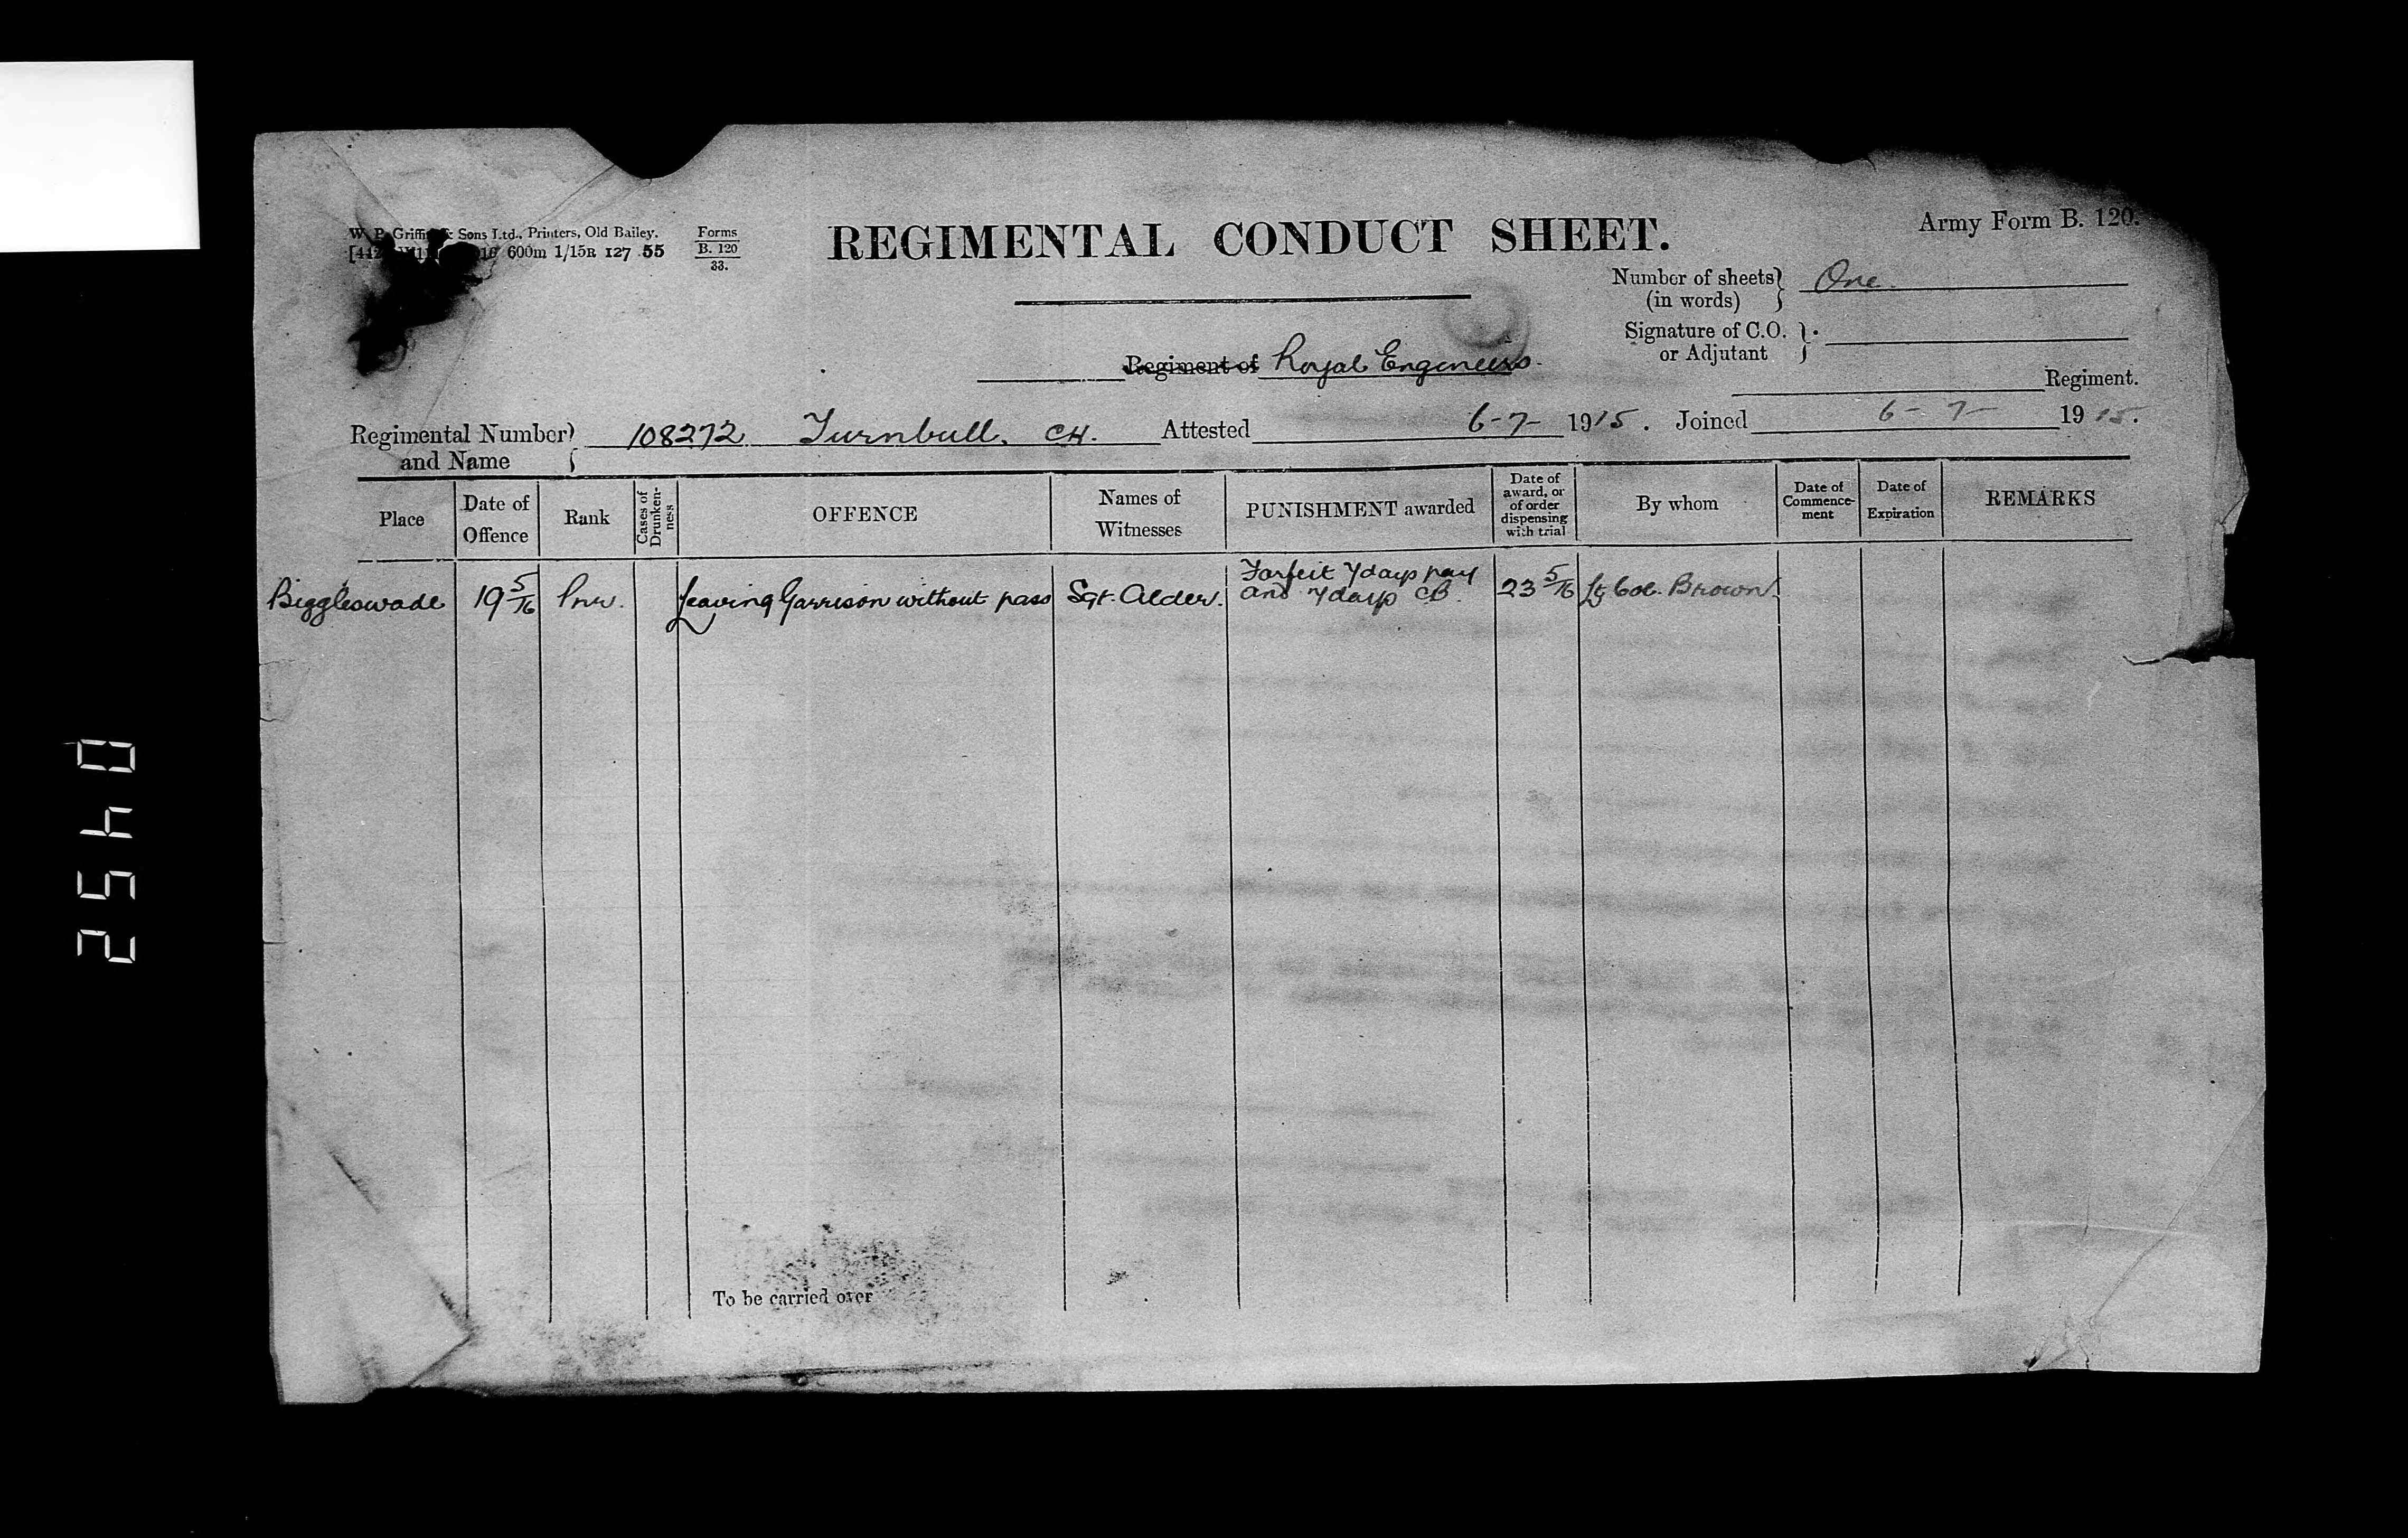 W. P. Griffi & Sons Ltd., Printers, Old Bailey.
600m 1/15R 127 55
Forms
B. 120
33.
REGIMENTAL CONDUCT SHEET.
Army Form B. 120.
Number of sheets (in words) } One.
Signature of C.O. or Adjutant }
Regiment of Royal Engineers.
Regiment.
Regimental Number and Name } 108272 Turnbull, C.H. Attested 6-7- 1915. Joined 6-7- 1915.
Place
Date of Offence
Rank
Cases of Drunken-ness
OFFENCE
Names of Witnesses
PUNISHMENT awarded
Date of award, or of order dispensing with trial
By whom
Date of Commence-ment
Date of Expiration
REMARKS
Biggleswade 19 5/16 Pnr. Leaving Garrison without pass Sgt. Alder. Forfeit 7 days pay and 7 days CB. 23 5/16 Lt Col. Brown.
To be carried over
0452